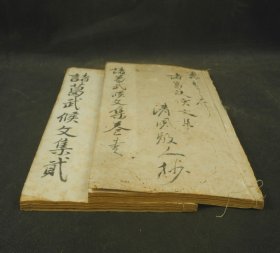 諸葛武侯文集
清風散人抄
諸葛武侯文集卷壹
諸葛武候文集貳